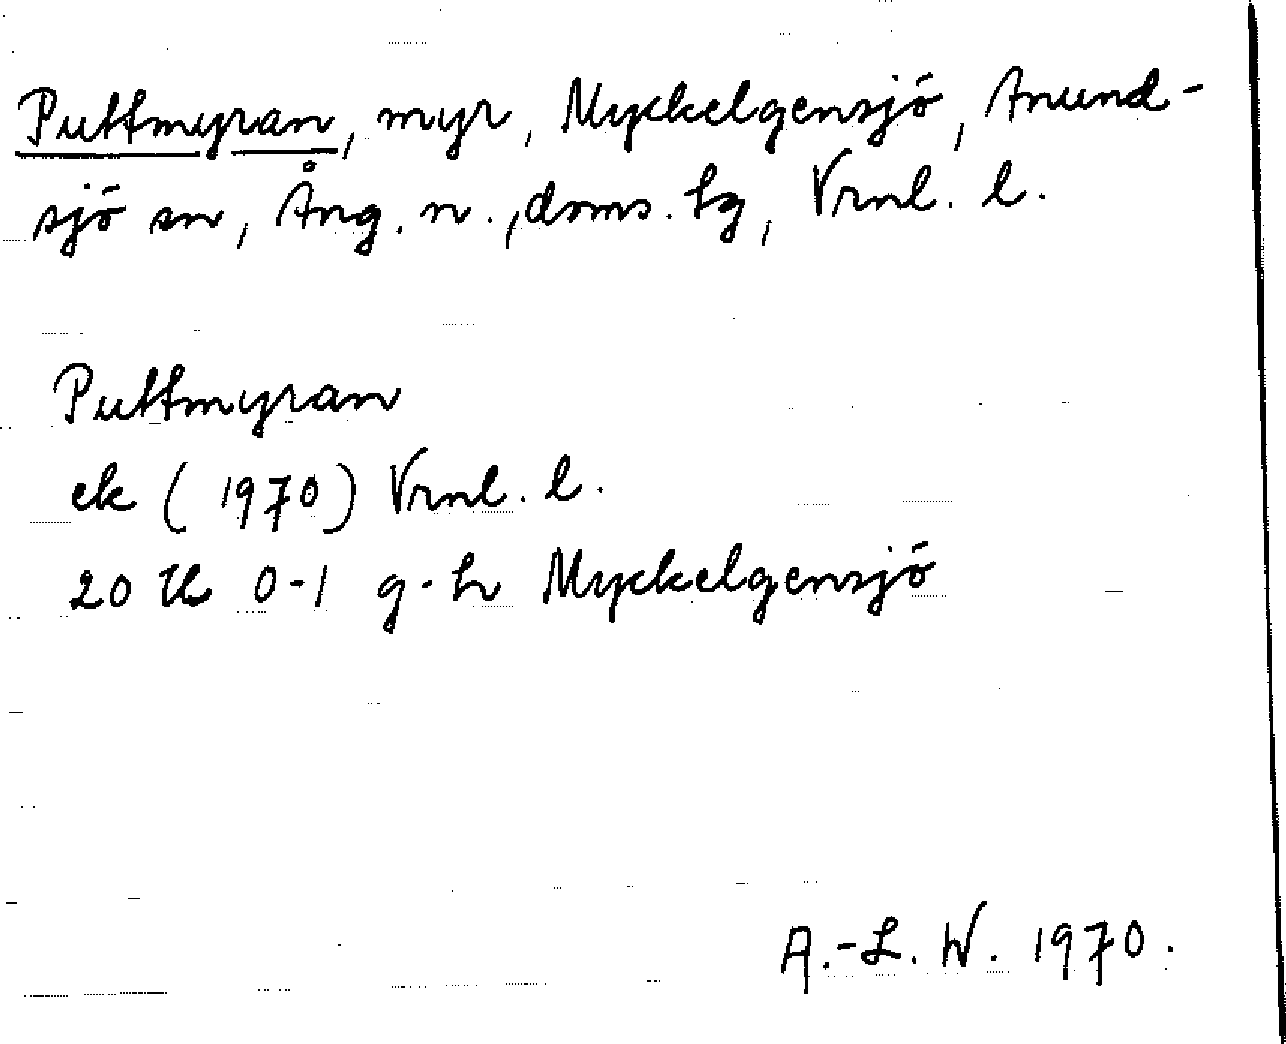 Puttmyran, myr, Myckelgensjö, Anund-
sjö sn, Ång. n., doms. hg, Vrnl. l.
Puttmyran
ek (1970) Vrnl. l.
20 H 0-1 g-h Myckelgensjö
A.-L. W. 1970.